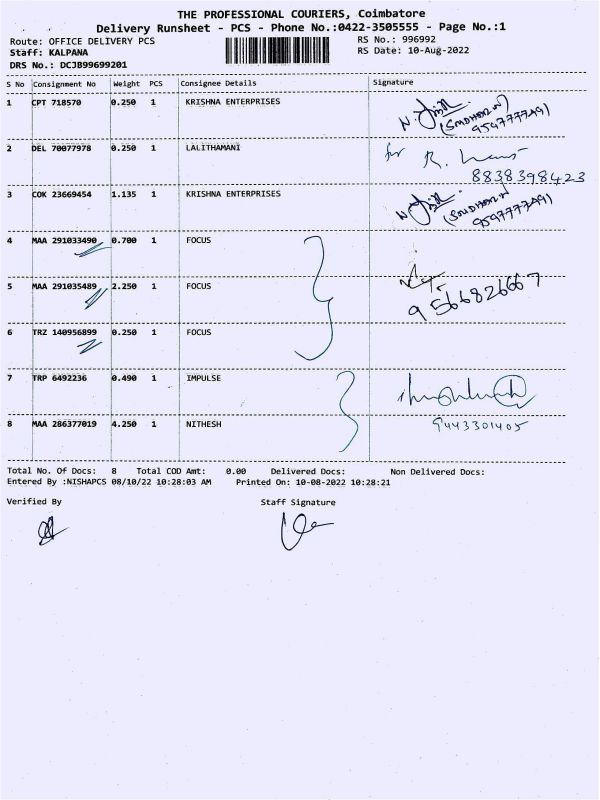 THE PROFESSIONAL COURIERS, Coimbatore
Delivery Runsheet - PCS - Phone No.:0422-3505555 - Page No.:1
Route: OFFICE DELIVERY PCS RS No.: 996992
Staff: KALPANA RS Date: 10-Aug-2022
DRS No.: DCJB99699201
S No Consignment No Weight PCS Consignee Details Signature
1 CPT 718570 0.250 1 KRISHNA ENTERPRISES
(SMDHARAN)
9597777491)
2 DEL 70077978 0.250 1 LALITHAMANI for R.
8838398423
3 COK 23669454 1.135 1 KRISHNA ENTERPRISES
9597777491)
4 MAA 291033490 0.700 1 FOCUS
5 MAA 291035489 2.250 1 FOCUS
9566826667
6 TRZ 140956899 0.250 1 FOCUS
7 TRP 6492236 0.490 1 IMPULSE
8 MAA 286377019 4.250 1 NITHESH 9443301405
Total No. Of Docs: 8 Total COD Amt: 0.00 Delivered Docs: Non Delivered Docs:
Entered By :NISHAPCS 08/10/22 10:28:03 AM Printed On: 10-08-2022 10:28:21
Verified By Staff Signature